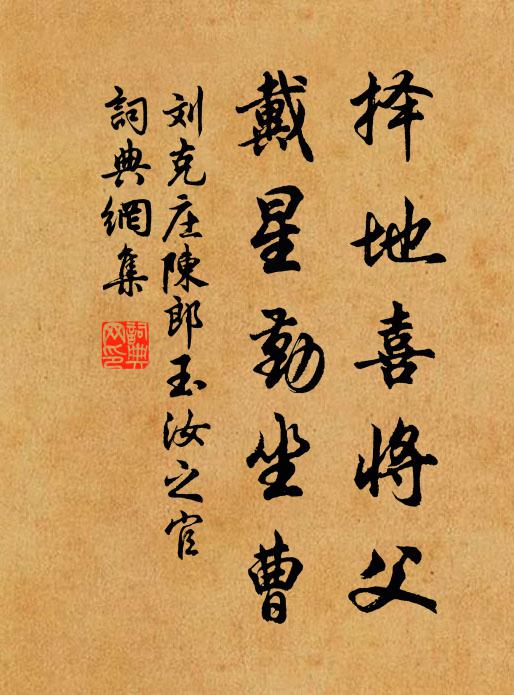 择地喜将父
戴星勤坐曹
刘克庄陳郎玉汝之官
詞典網集
詞典
网印